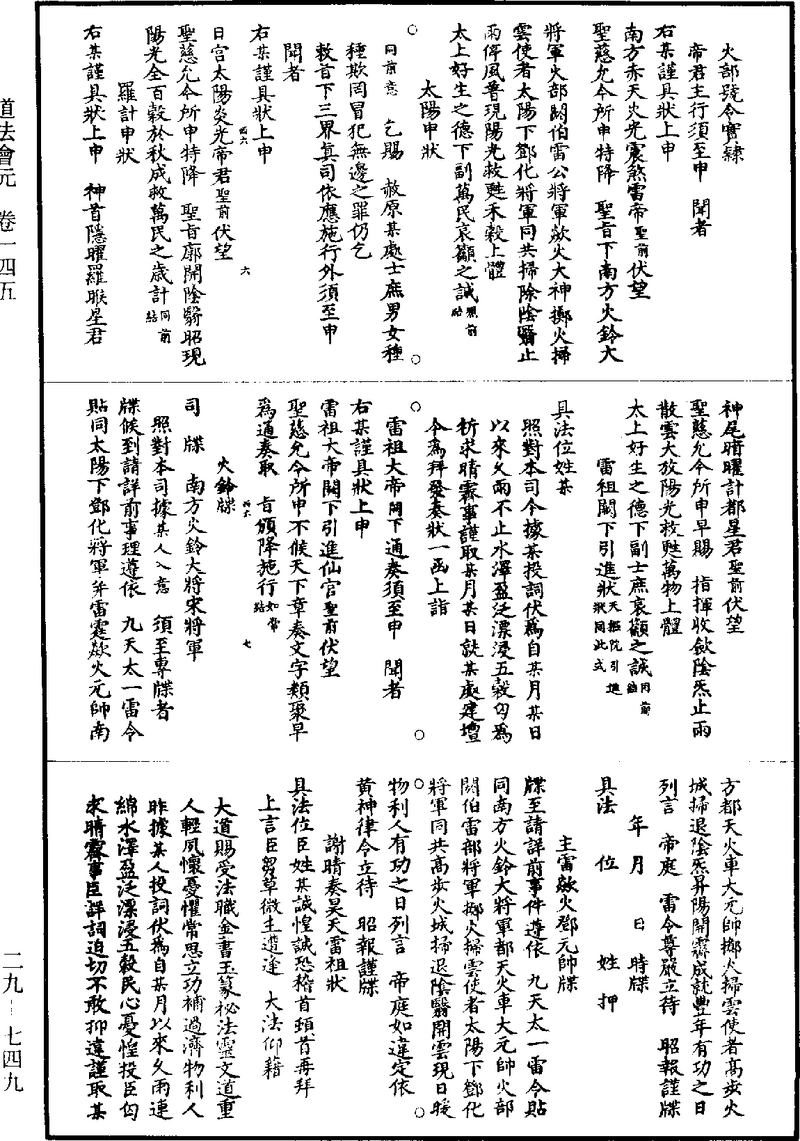 火部號令實隸
帝君主行須至申　聞者
右某謹具狀上申
南方赤天火光震煞雷帝聖前伏望
聖慈允今所申特降　聖旨下南方火鈴大
將軍火部閼伯雷公將軍歘火大神擲火掃
雲使者太陽下鄧化將軍同共掃除陰翳止
雨俾風普現陽光救甦禾穀上體
太上好生之德下副萬民哀籲之誠照前結
太陽申狀
同前意　乞賜　赦原某處士庶男女種
種欺罔冒犯無邊之罪仍乞
敕旨下三界真司依應施行外須至申
聞者
右某謹具狀上申
日宮太陽炎光帝君聖前伏望
聖慈允今所申特降　聖旨廓開陰翳昭現
陽光全百穀於秋成救萬民之歲計同前結
羅計申狀
右某謹具狀上申　神首隱曜羅睺星君
神尾暗曜計都星君聖前伏望
聖慈允今所申早賜　指揮收歛陰炁止雨
散雲大放陽光救甦萬物上體
太上好生之德下副士庶哀籲之誠同前結
雷祖闕下引進狀天樞院引進狀同此式
具法位姓某
照對本司今據某投詞伏為自某月某日
以來久雨不止水澤盈泛漂浸五穀匄為
祈求晴霽事謹取某月某日就某處建壇
今為拜發奏狀一函上詣
雷祖大帝闕下通奏須至申　聞者
右某謹具狀上申
雷祖大帝闕下引進仙官聖前伏望
聖慈允今所申不候天下章奏文字類聚早
為通奏取　旨頒降施行如常結
火鈴牒
司　牒　南方火鈴大將宋將軍
照對本司據某人入意　須至專牒者
牒候到請詳前事理遵依　九天太一雷令
貼同太陽下鄧化將軍并雷霆歘火元帥南
方都天火車大元帥擲火掃雲使者高步火
城掃退陰炁昇陽開霽成就豐年有功之日
列言　帝庭　雷令尊嚴立待　昭報謹牒
年　月　日　時牒
具法　位　姓　押
主雷歘火鄧元帥牒
牒至請詳前事件遵依　九天太一雷令貼
同南方火鈴大將軍都天火車大元帥火部
閼伯雷部將軍擲火掃雲使者太陽下鄧化
將軍同共高步火城掃退陰翳開雲現日暖
物利人有功之日列言　帝庭如違定依
黃神律令立待　昭報謹牒
謝晴奏昊天雷祖狀
具法位臣姓某誠惶誠恐稽首頓首再拜
上言臣芻草微生遭逢　大法仰藉
大道賜受法職金書玉篆秘法靈文道重
人輕夙懷憂懼常思立功補過濟物利人
昨據某人投詞伏為自某月以來久雨連
綿水澤盈泛漂浸五穀民心憂惶投臣匄
求晴霽事臣詳詞迫切不敢抑違謹取某
道法會元　卷一四五
二九—七四九